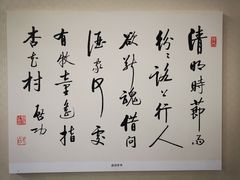 清明時節雨
紛紛路上行人
欲斷魂借問
酒家何處
有牧童遙指
杏花村 啟功